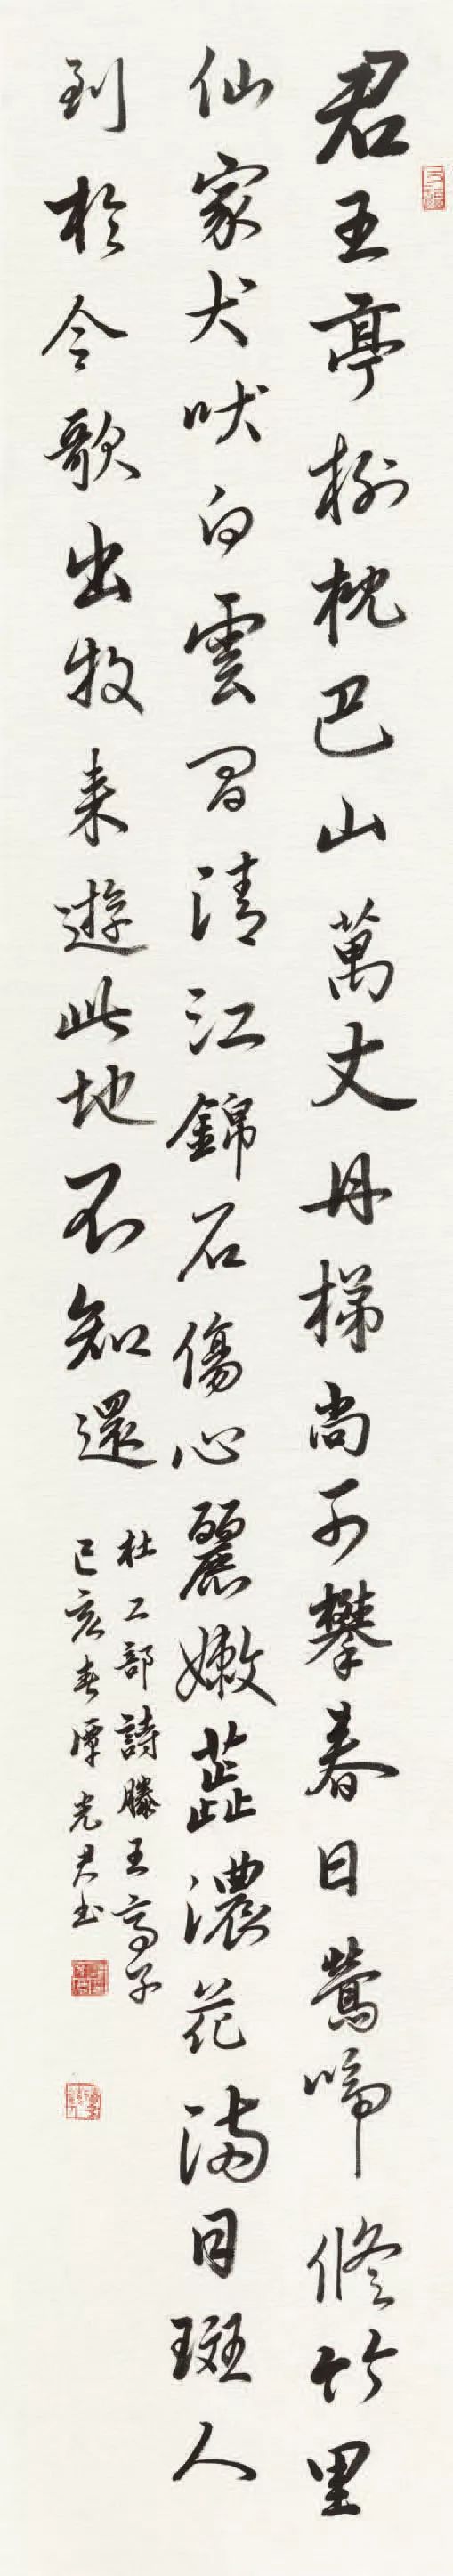 君王亭榭枕巴山萬丈丹梯尚可攀春日鶯啼修竹里
仙家犬吠白雲間清江錦石傷心麗嫩蕊濃花滿目斑人
到於今歌出牧来遊此地不知還
杜工部詩滕王亭子
己亥春潭光君书